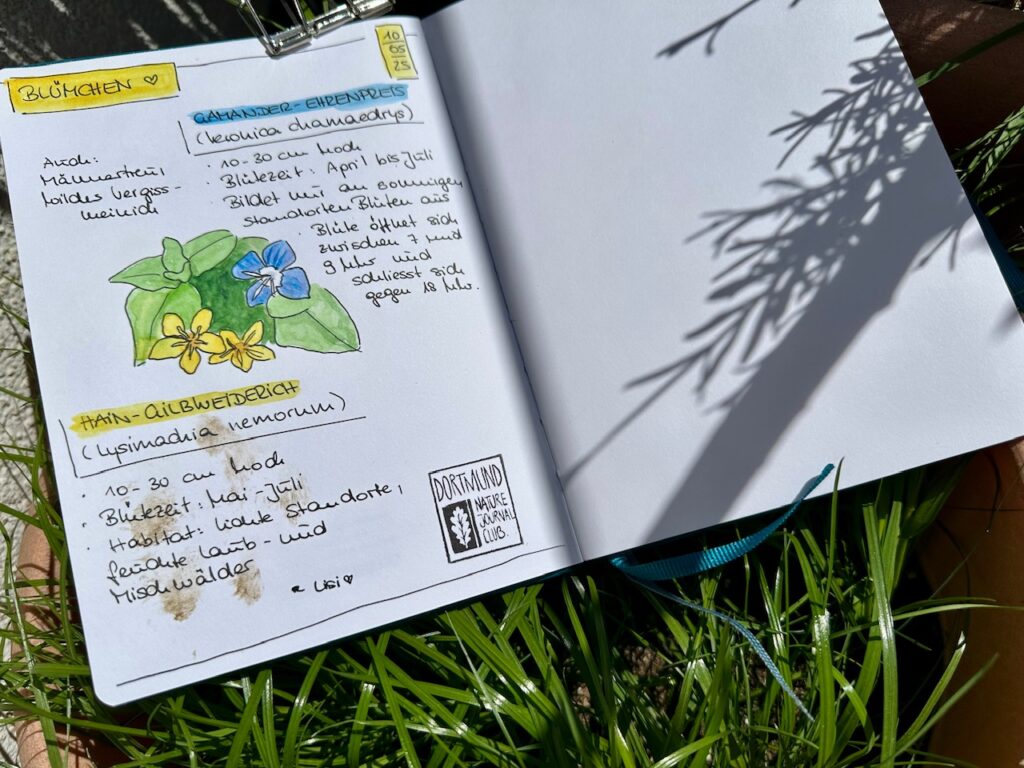 BLÜMCHEN ♡
10
05
25
GAMANDER-EHRENPREIS
(Veronica chamaedrys)
Auch:
Männertreu,
wildes Vergiss-
meinnich
· 10-30 cm hoch
· Blütezeit: April bis Juli
· Bildet nur an sonnigen
Standorten Blüten aus
· Blüte öffnet sich
zwischen 7 und
9 Uhr und
schliesst sich
gegen 18 Uhr.
HAIN-GILBWEIDERICH
(Lysimachia nemorum)
· 10-30 cm hoch
· Blütezeit: Mai-Juli
· Habitat: lichte Standorte,
feuchte Laub- und
Mischwälder
DORTMUND
NATURE
JOURNAL
CLUB.